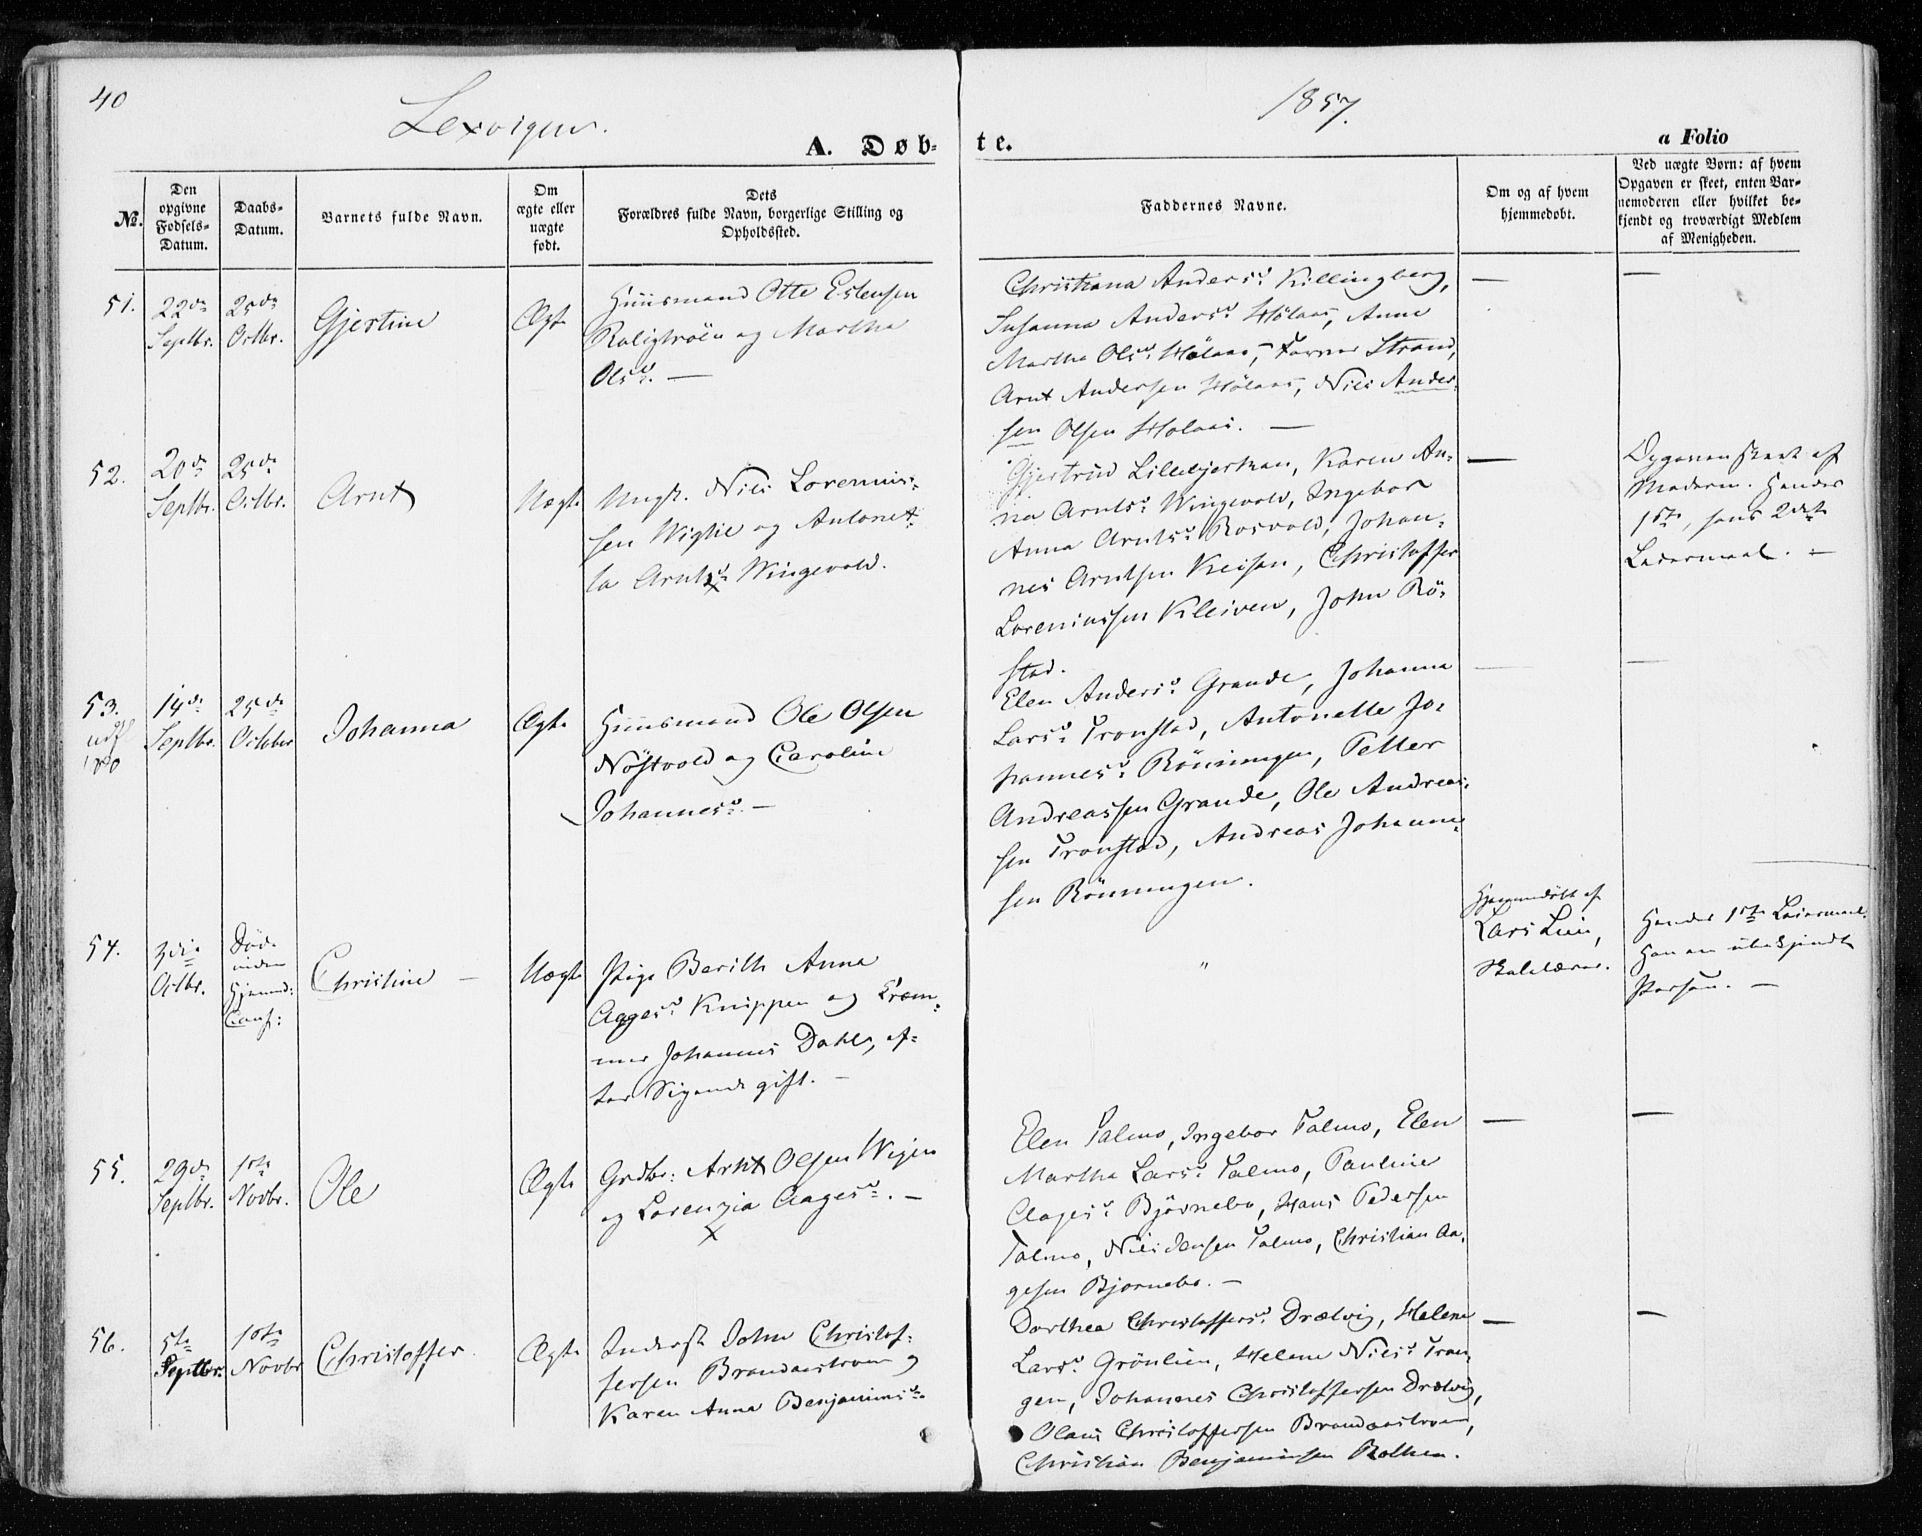 40
Lexvigen.
1857.
A. Døb-
te.
a Folio
№.
Den
opgivne
Fødsels-
Datum.
Daabs-
Datum.
Barnets fulde Navn.
Om
ægte eller
uægte
født.
Dets
Forældres fulde Navn, borgerlige Stilling og
Opholdssted.
Faddernes Navne.
Om og af hvem
hjemmedøbt.
Ved uægte Børn: af hvem
Opgaven er skeet, enten Bar-
nemoderen eller hvilket be-
kjendt og troværdigt Medlem
af Menigheden.
51.
22de
Septbr.
25de
Octbr.
Gjertine
Ægte
Huusmand Otte Estensen
og Martha
Olsd. —
Christiana Andersd. Killingberg,
Susanna Andersd. Hölaas, Anne
Martha Olsd. Hölaas, Strand,
Arnt Andersen Hölaas, Nils Ander-
sen Olsen Holaas. —
—
—
52.
20de
Septbr.
25de
Octbr.
Arnt
Uægte
Ungk. Nils Lorenius-
sen Wiglie og Antonet-
ta Arntsd. Wingevold.
Gjertrud Lillekjerkan, Karen An-
na Arntsd. Wingevold, Ingebor
Anna Arntsd. Rosvold, Johan-
nes Arntsen Keisen, Christoffer
Loreniussen Kleiven, John Rö-
stad.
—
Opgaven skeet af
Moderen. Hendes
1ste, hans 2det
Leiermaal. —
53.
14de
Septbr.
25de
October
Johanna
Ægte
Huusmand Ole Olsen
Nöstvold og Caroline
Johannesd. —
Elen Andersd. Grande, Johanna
Larsd. Tronstad, Antonette Jo-
hannesd. Rönningen, Petter
Andreassen Grande, Ole Andreas-
sen Tronstad, Andreas Johanne-
sen Rönningen.
—
—
54.
3die
Octbr.
Död
inden
Hjemmed:
Conf:
Christine —
Uægte
Pige Berith Anna
Aagesd. Knippen og
Johannes Dahl, ef-
ter Sigende gift. —
"
Hjemmedöbt af
Lars Lien,
Skolelærer.
Hendes 1ste Leiermaal.
Han en ubekjendt
Person. —
55.
29de
Septbr.
1ste
Novbr.
Ole
Ægte
Grdbr: Arnt Olsen Wigen
og Lorenzia Aagesd. —
Elen Talmo, Ingebor Talmo, Elen
Martha Larsd. Talmo, Pauline
Aagesd. Björnebo, Hans Pedersen
Talmo, Nils Jensen Talmo, Christian Aa-
gesen Bjornebo. —
—
—
56.
5te
Septbr.
1ste
Novbr
Christoffer
Ægte
Inderst John Christof-
fersen Brandaestroen og
Karen Anna Benjaminsd.
Dorthea Christoffersd. Drælvig, Helene
Larsd. Grönlien, Helene Nilsd. Tran-
gen, Johannes Christoffersen Drælvig,
Olaus Christoffersen Brandaestroen,
Christian Benjaminsen Rolhen.
—
—